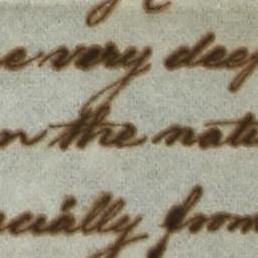 e very deep
n the natu
ecially from